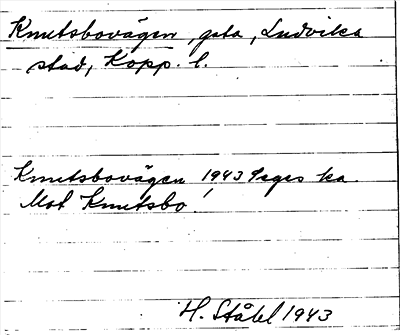 Knutsbovägen, gata, Ludvika
stad, Kopp. l.
Knutsbovägen 1943 Sages ha.
Mot Knutsbo!
H. Ståhl 1943